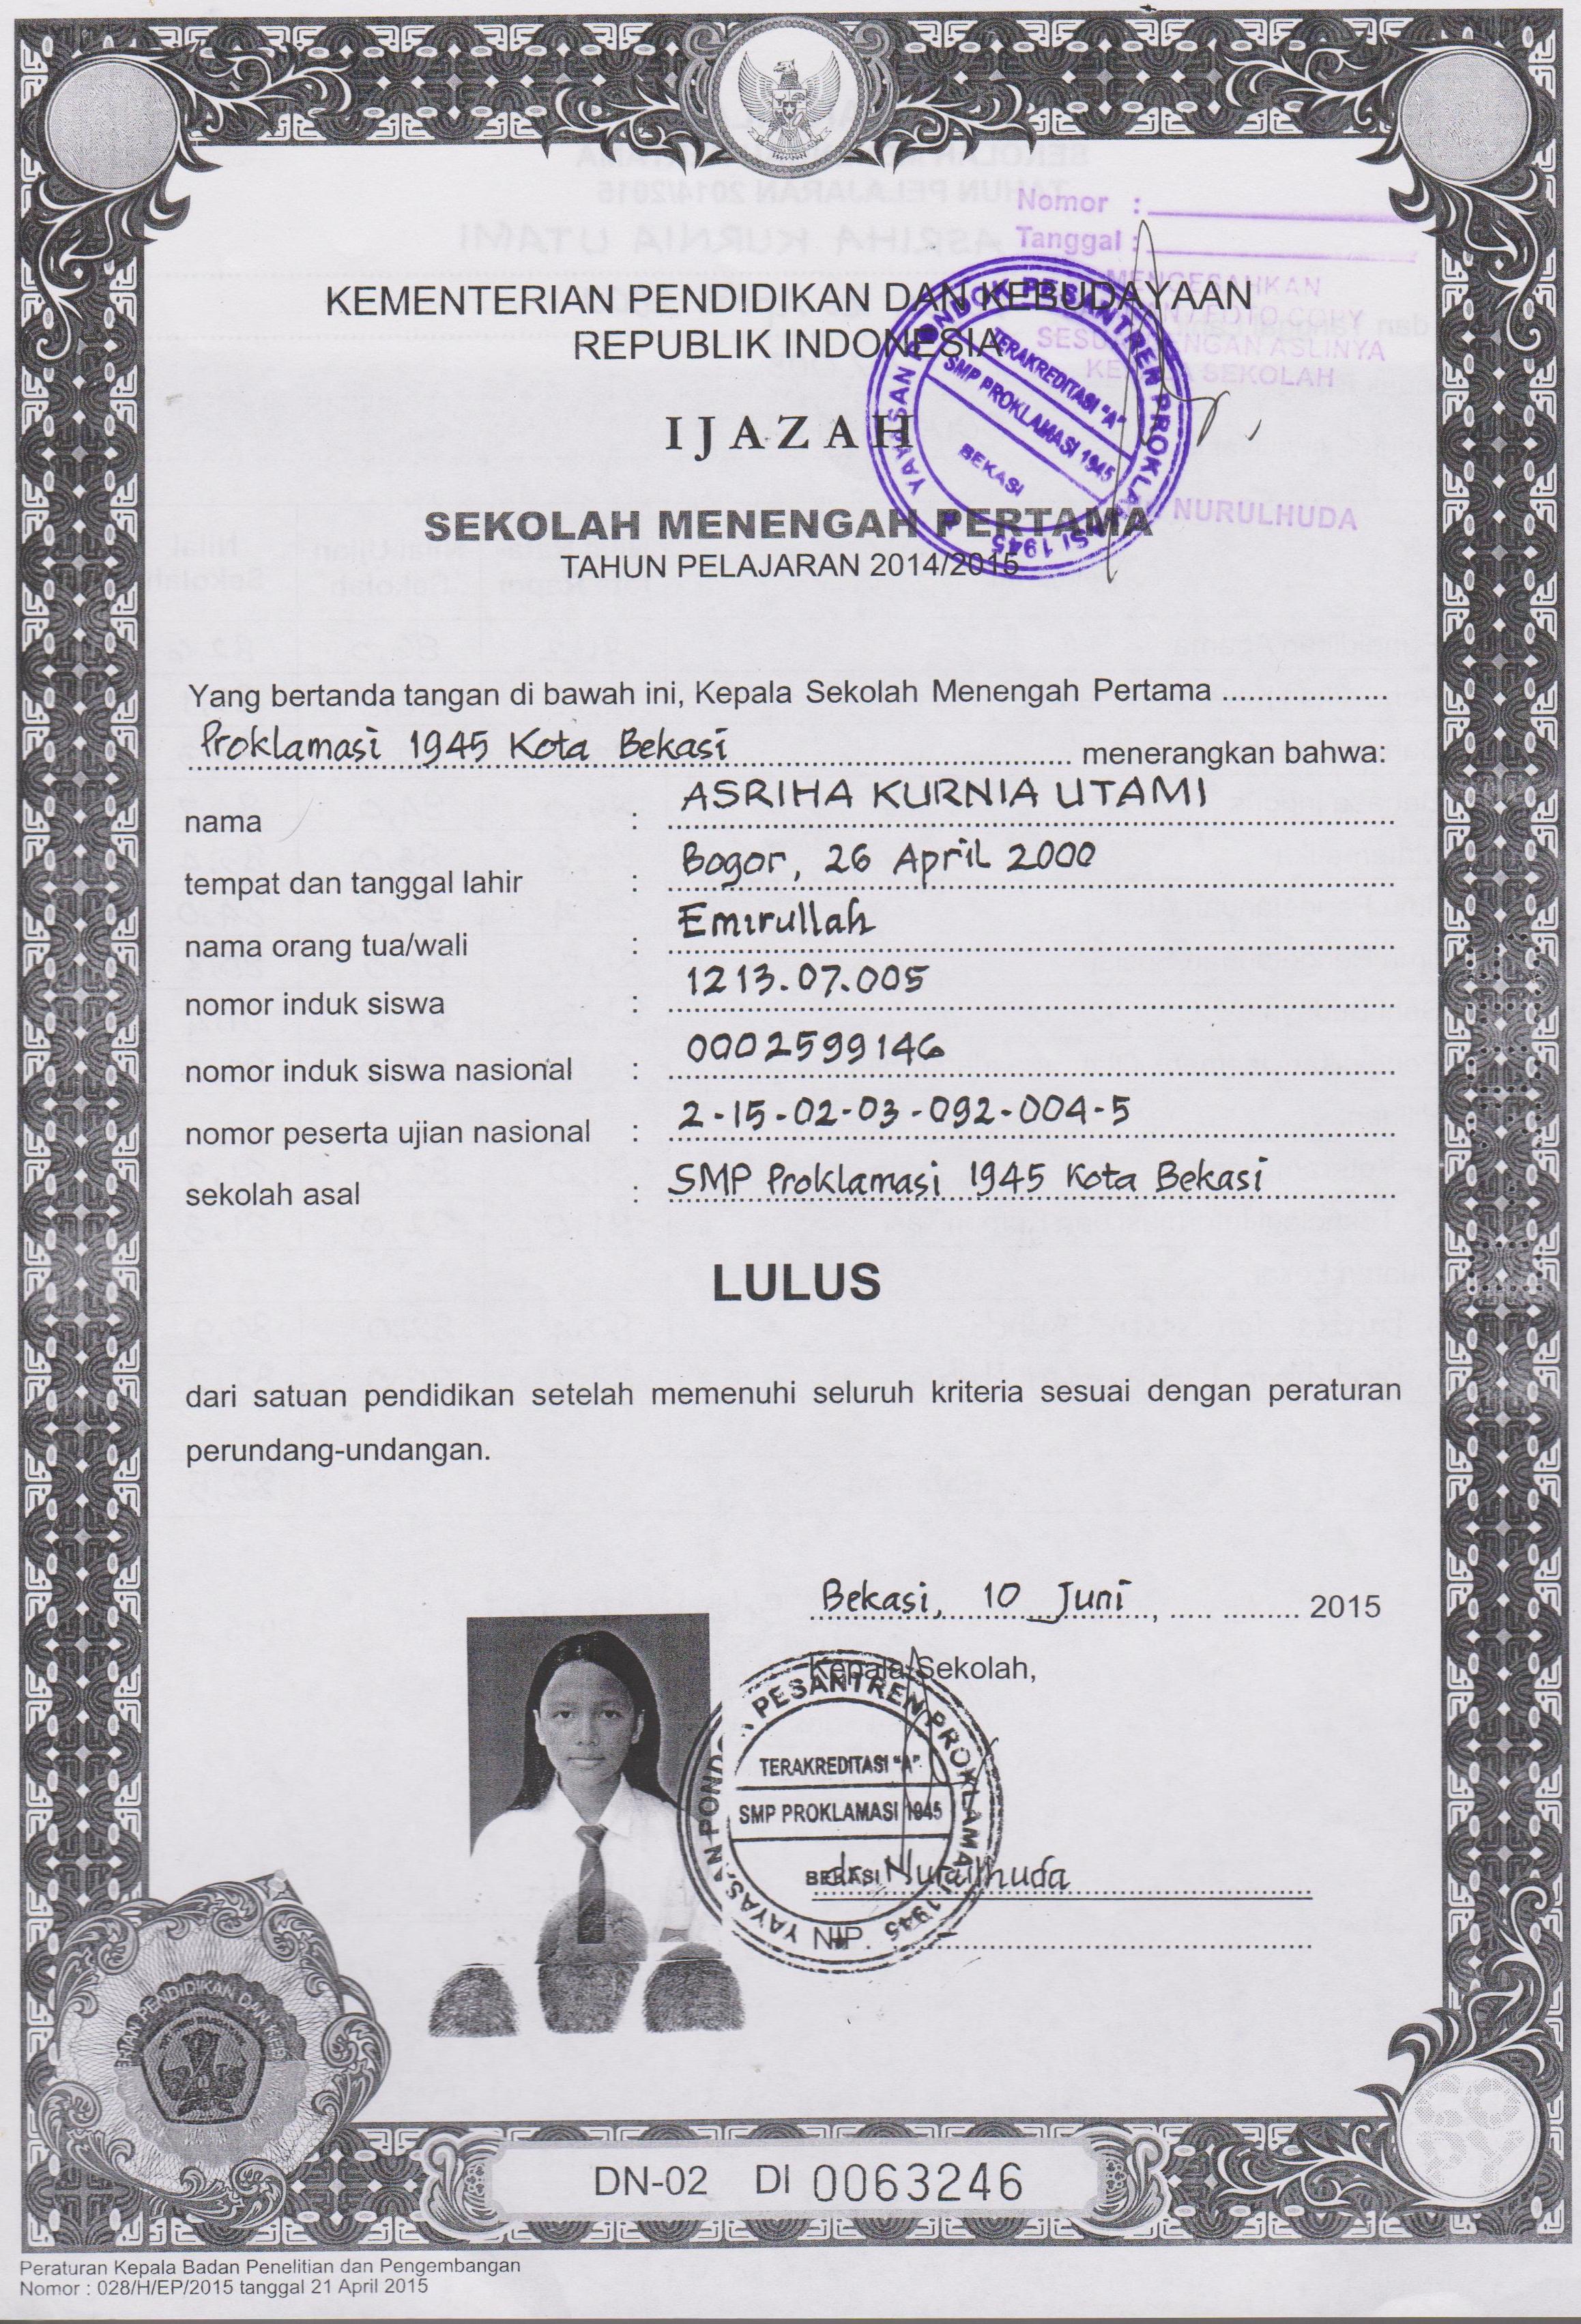 Nomor :
Tanggal :
MENGESAHKAN
FOTO COPY
SESUAI DENGAN ASLINYA
KEPALA SEKOLAH
NURULHUDA
YAYASAN PONDOK PESANTREN PROKLAMASI 1945
TERAKREDITASI "A"
SMP PROKLAMASI 1945
BEKASI
KEMENTERIAN PENDIDIKAN DAN KEBUDAYAAN
REPUBLIK INDONESIA
IJAZAH
SEKOLAH MENENGAH PERTAMA
TAHUN PELAJARAN 2014/2015
Yang bertanda tangan di bawah ini, Kepala Sekolah Menengah Pertama ....................
Proklamasi 1945 Kota Bekasi menerangkan bahwa:
nama : ASRIHA KURNIA UTAMI
tempat dan tanggal lahir : Bogor, 26 April 2000
nama orang tua/wali : Emirullah
nomor induk siswa : 1213.07.005
nomor induk siswa nasional : 0002599146
nomor peserta ujian nasional : 2-15-02-03-092-004-5
sekolah asal : SMP Proklamasi 1945 Kota Bekasi
LULUS
dari satuan pendidikan setelah memenuhi seluruh kriteria sesuai dengan peraturan
perundang-undangan.
Bekasi, 10 Juni, 2015
Kepala Sekolah,
YAYASAN PONDOK PESANTREN PROKLAMASI 1945
TERAKREDITASI "A"
SMP PROKLAMASI 1945
BEKASI
dr. Nurulhuda
NIP.
PENDIDIKAN DAN
COPY
DN-02 DI 0063246
Peraturan Kepala Badan Penelitian dan Pengembangan
Nomor : 028/H/EP/2015 tanggal 21 April 2015